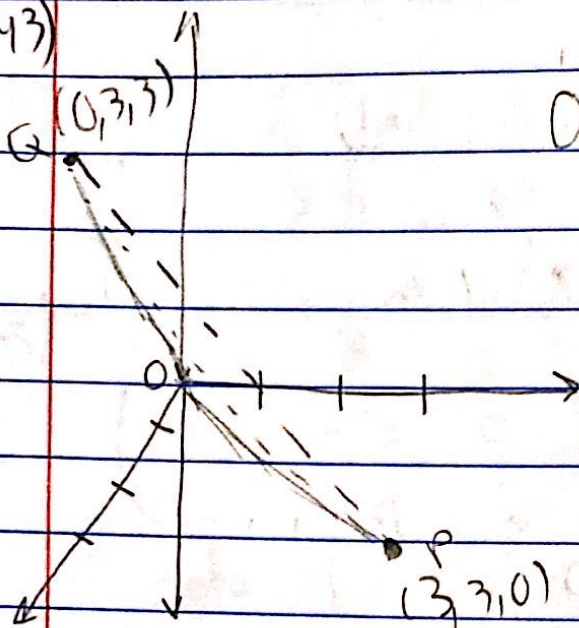 43)
(0,3,3)
Q
O
P
(3,3,0)